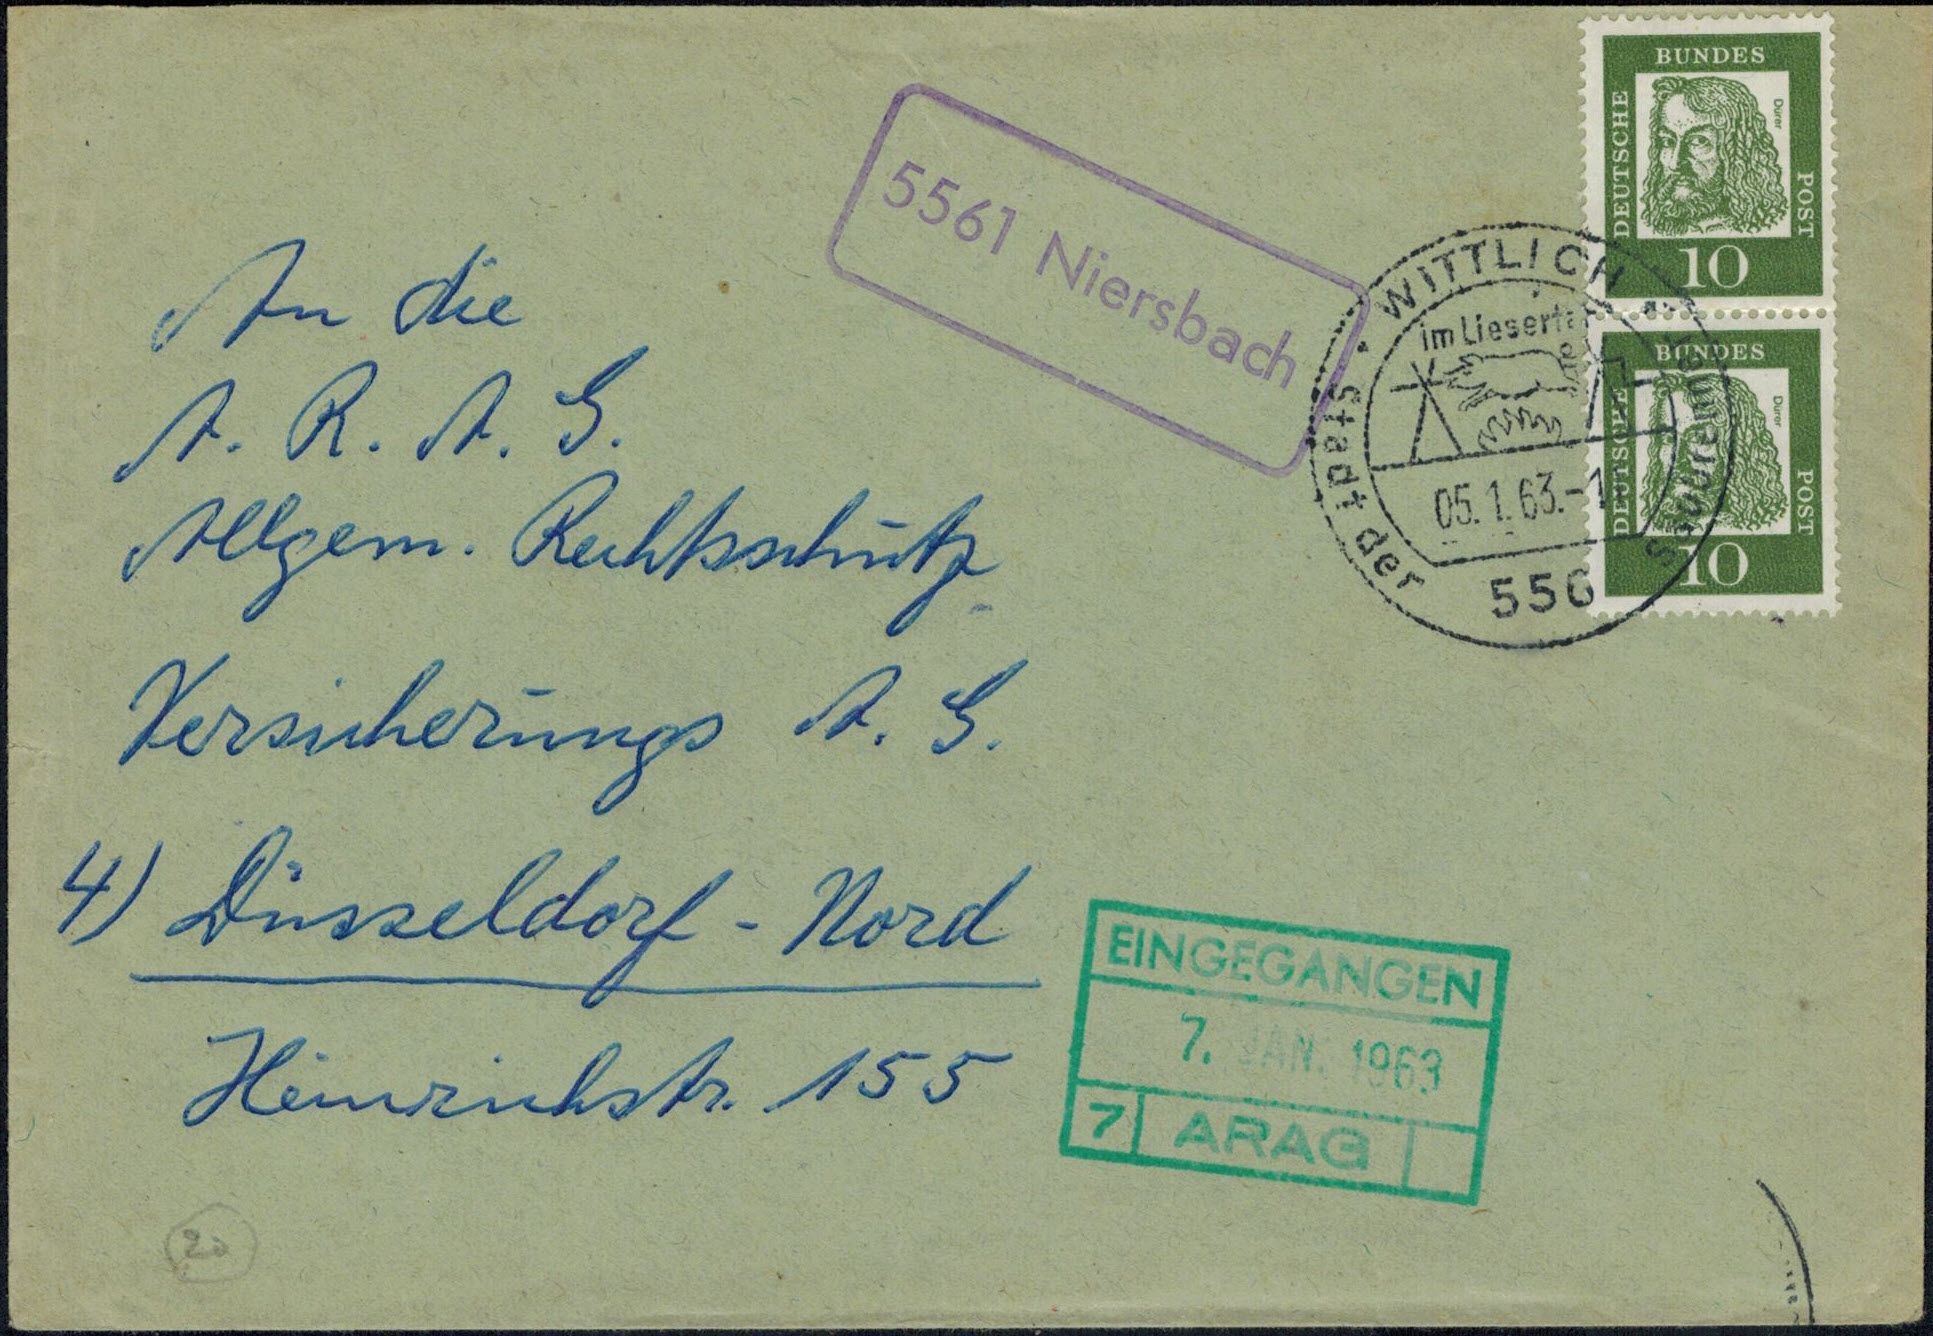 DEUTSCHE BUNDES POST
Dürer
10
5561 Niersbach
WITTLICH
im Liesert
Stadt der Säubrenner
05.1.63.-1
556
DEUTSCHE BUNDES POST
Dürer
10
An die
A. R. A. G.
Allgem. Rechtsschutz
Versicherungs A. G.
4) Düsseldorf - Nord
Heinrichstr. 155
EINGEGANGEN
7. JAN. 1963
7 ARAG
20